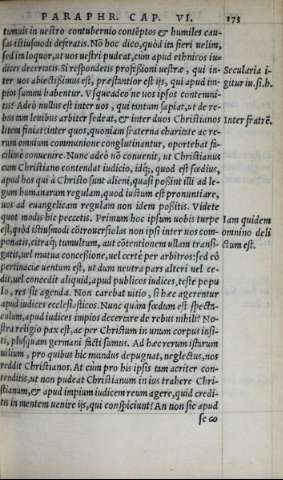 PARAPHR. CAP. VI. 173
tumuis in uestro contubernio contẽptos & humiles cau-
sas istiusmodi deferatis. Nõ hoc dico, quòd ita fieri uelim,
sed in loquor, ut uos uestri pudeat, cùm apud ethnicos iu-
dices deceratis. Si respondetis professioni uestræ, qui in-
ter uos abiectissimus est, præstantior est ijs, qui apud im-
pios summi habentur. Vsqueadeò ne uos ipsos contemni-
tis? Adeò nullus est inter uos, qui tantum sapiat, ut de re-
bus tam leuibus arbiter sedeat, & inter duos Christianos
litem finiat: inter quos, quoniam fraterna charitate ac re-
rum omnium communione conglutinantur, oportebat fa-
cilimè conuenire. Nunc adeò nõ conuenit, ut Christianus
cum Christiano contendat iudicio, idq́;, quod est fœdius,
apud hos qui à Christo sunt alieni, quasi possint illi ad le-
gum humanarum regulam, quod iustum est pronuntiare,
uos ad euangelicam regulam non idem possitis. Videte
quot modis hic peccetis. Primum hoc ipsum uobis turpe
est, quòd istiusmodi cõtrouersiolas non ipsi inter uos com-
ponatis, citraq́; tumultum, aut cõtentionem ullam transi-
gatis, uel mutua concessione, uel certè per arbitros: sed eò
pertinaciæ uentum est, ut dum neutra pars alteri uel ce-
dit, uel concedit aliquid, apud publicos iudices, teste popu
lo, res sit agenda. Non carebat uitio, si hæc agerentur
apud iudices ecclesiasticos. Nunc quàm fœdum est specta-
culum, apud iudices impios decertare de rebus nihili? No-
stra religio pax est, ac per Christum in unum corpus insi-
ti, plusquam germani facti sumus. Ad hæc rerum istarum
uilium, pro quibus hic mundus depugnat, neglectus, nos
reddit Christianos. At cùm pro his ipsis tam acriter con-
tenditis, ut non pudeat Christianum in ius trahere Chri-
stianum, & apud impium iudicem reum agere, quid credi-
tis in mentem uenire ijs, qui conspiciunt? An non sic apud
se co
Secularia i-
gitur iu. si. h.
Inter fratrẽ.
Iam quidem
omnino deli
ctum est.